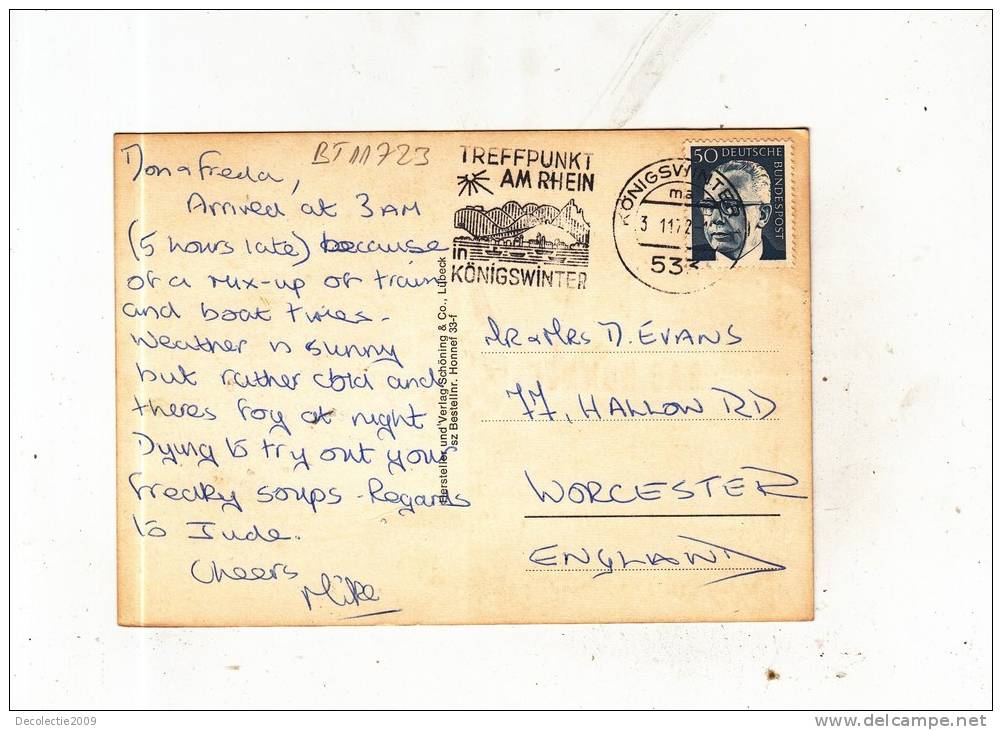 Don & Freda,
Arrived at 3AM
(5 hours late) because
of a mix-up of train
and boat times.
Weather is sunny
but rather cold and
theres fog at night
Dying to try out your
freaky soups - Regards
to Jude.
Cheers
Mike
BT11723
TREFFPUNKT
AM RHEIN
in
KÖNIGSWINTER
KÖNIGSWINTER
3.1172
533
50 DEUTSCHE
BUNDESPOST
Hersteller und Verlag Schöning & Co., Lübeck
sz Bestellnr. Honnef 33-f
Mr & Mrs D. EVANS
77, HALLOW RD
WORCESTER
ENGLAND
Decolectie2009
www.delcampe.net